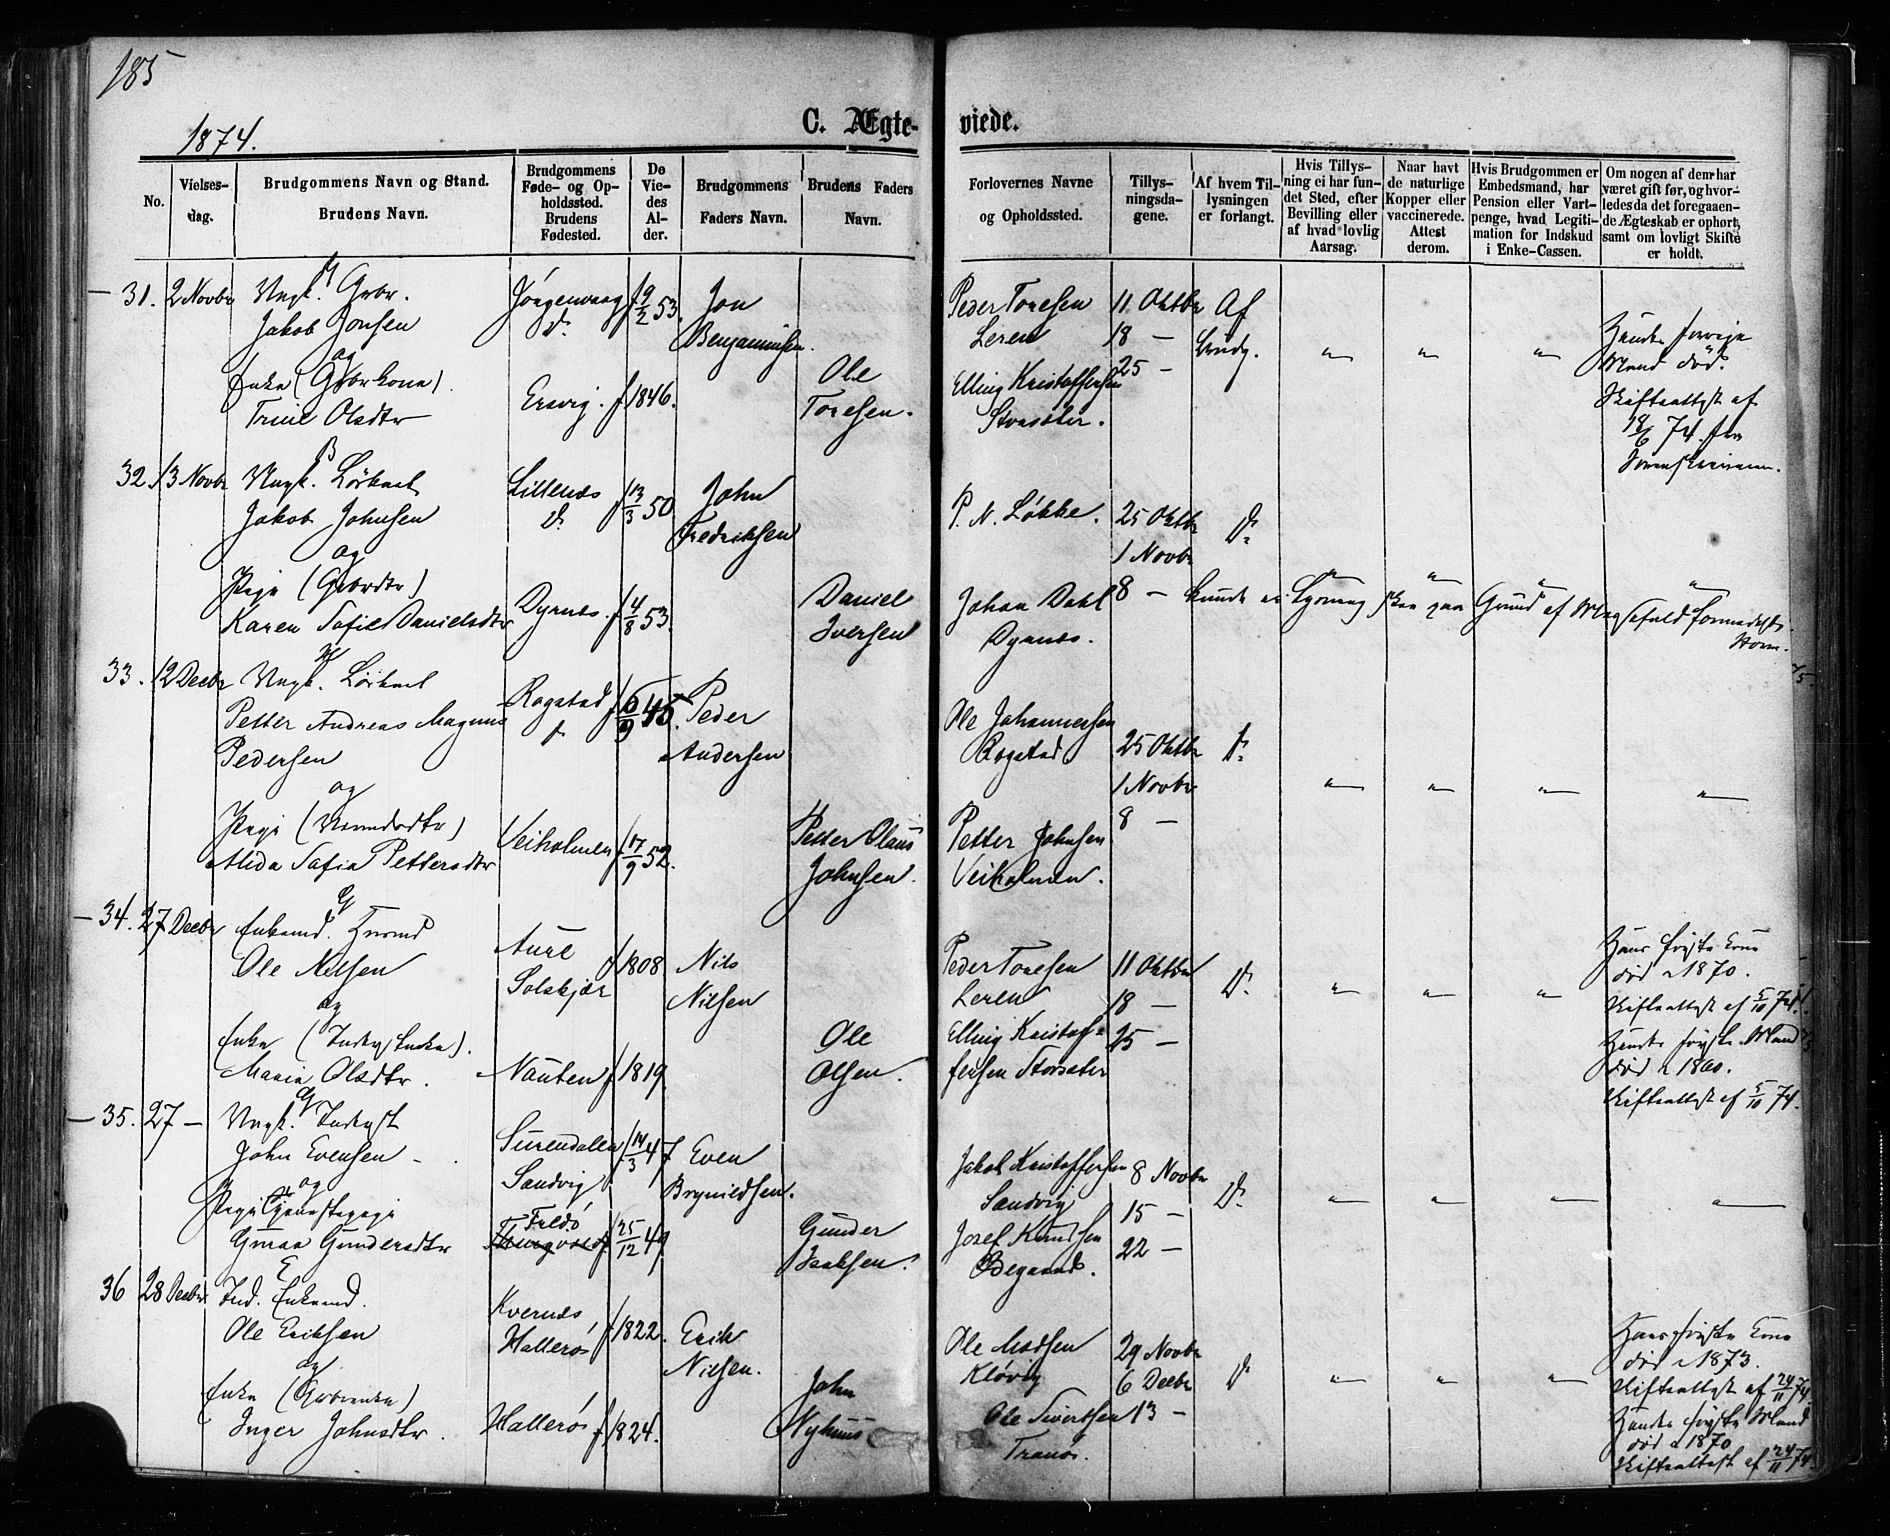 185
1874.
C. Ægte-viede.
No.
Vielses-
dag.
Brudgommens Navn og Stand.
Brudens Navn.
Brudgommens
Føde- og Op-
holdssted.
Brudens
Fødested.
De
Vie-
des
Al-
der.
Brudgommens
Faders Navn.
Brudens Faders
Navn.
Forlovernes Navne
og Opholdssted.
Tillys-
ningsdagene.
Af hvem Til-
lysningen
er forlangt.
Hvis Tillys-
ning ei har fun-
det Sted, efter
Bevilling eller
af hvad lovlig
Aarsag.
Naar havt
de naturlige
Kopper eller
vaccinerede.
Attest
derom.
Hvis Brudgommen er
Embedsmand, har
Pension eller Vart-
penge, hvad Legiti-
mation for Indskud
i Enke-Cassen.
Om nogen af dem har
været gift før, og hvor-
ledes da det foregaaen-
de Ægteskab er ophørt,
samt om lovligt Skifte
er holdt.
31. 2 Novbr Ungk. Gbr.
Jakob Jonsen
og
Enke (Gbrkone).
Trine Olsdtr
Jørgenvaag
f 9/2 53.
Ersvig. f 1846.
Jon
Benjaminsen.
Ole
Toresen.
Peder Toresen
Leren
Elling Kristoffersen
Storsæter.
11 Oktbr
18 —
25 —
Af
Brudg.
" " "
Hendes forrige
Mand død.
Skifteattest af
18/6 74 fra
Sorenskriveren.
32. 13 Novbr Ungk. Löskarl
Jakob Johnsen
og
Pige (Gbrdtr)
Karen Sofie Danielsdtr
Lillenes
f 13/3 50
Dyrnes. f 4/8 53.
John
Fredriksen
Daniel
Iversen
P. N. Løkke.
Johan Dahl
Dyrnes.
25 Oktbr
1 Novbr
8 —
D.
" " " "
Storm.
33. 12 Decbr Ungk. Löskarl
Petter Andreas Magnus
Pedersen
og
Pige
Alida Sofia Pettersdtr
Rogstad
f 6/9 45.
Veiholmen f 17/9 52.
Peder
Andersen
Petter Olaus
Johnsen.
Ole Johannessen
Rogstad
Petter Johnsen
Veiholmen.
25 Oktbr
1 Novbr
8 —
D.
" " " "
34. 27 Decbr Enkemd.
Ole Nilsen
og
Enke
Maria Olsdtr.
Aure
Solskjær
f 1808
Nausten f 1819.
Nils
Nilsen
Ole
Olsen.
Peder Toresen
Leren
Elling Kristof-
fersen Storsæter
11 Oktbr
18 —
25 —
D.
" " "
Hans første Kone
død i 1870.
Skifteattest af 5/10 74.
Hendes første Mand
død i 1860.
Skifteattest af 5/10 74.
35. 27 — Ungk. Inderst
John Evensen
og
Pige
Guraa Gundersdtr
Surendalen
Sandvig
f 14/3 47
Fredö
f 25/12 49
Even
Brynildsen.
Gunder
Isaksen.
Jakob Kristoffersen
Sandvig
Josef Knudsen
Ødegaard.
8 Novbr
15 —
22 —
D.
" " " "
36 28 Decbr Ind. Enkemd.
Ole Eriksen
og
Enke (Gbrenke)
Inger Johnsdtr.
Kvernes
Hallerøs
f 1822.
Hallerøs f 1824.
Erik
Nilsen.
John
Nyhuus
Ole Madsen
Kløvig
Ole Sivertsen
Tranøs.
29 Novbr
6 Decbr
13 —
D.
" " "
Hans første Kone
død i 1873.
Skifteattest af 24/11 74
Hendes første Mand
død i 1870
Skifteattest af 24/11 74